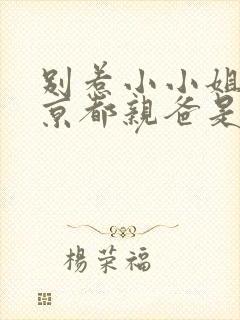 别惹小小姐
京都亲爸是
杨荣福